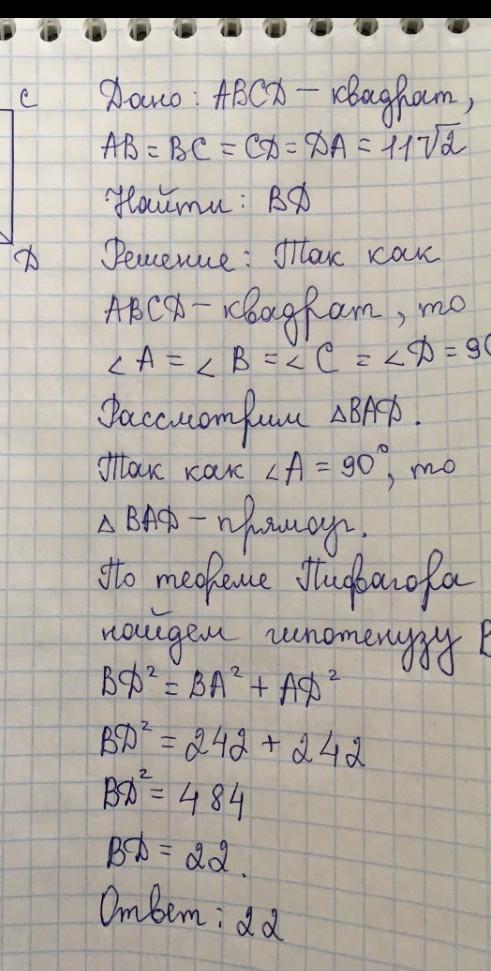 C
Дано: ABCD – квадрат,
AB = BC = CD = DA = 11√2
Найти: BD
D
Решение: Так как
ABCD – квадрат, то
∠A = ∠B = ∠C = ∠D = 90
Рассмотрим △BAD.
Так как ∠A = 90°, то
△BAD – прямоуг.
По теореме Пифагора
найдем гипотенузу B
BD² = BA² + AD²
BD² = 242 + 242
BD² = 484
BD = 22.
Ответ: 22